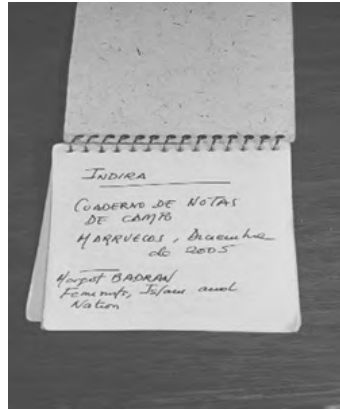 INDIRA
CUADERNO DE NOTAS
DE CAMPO
MARRUECOS, Diciembre
de 2005
Margot BADRAN
Feminists, Islam and
Nation